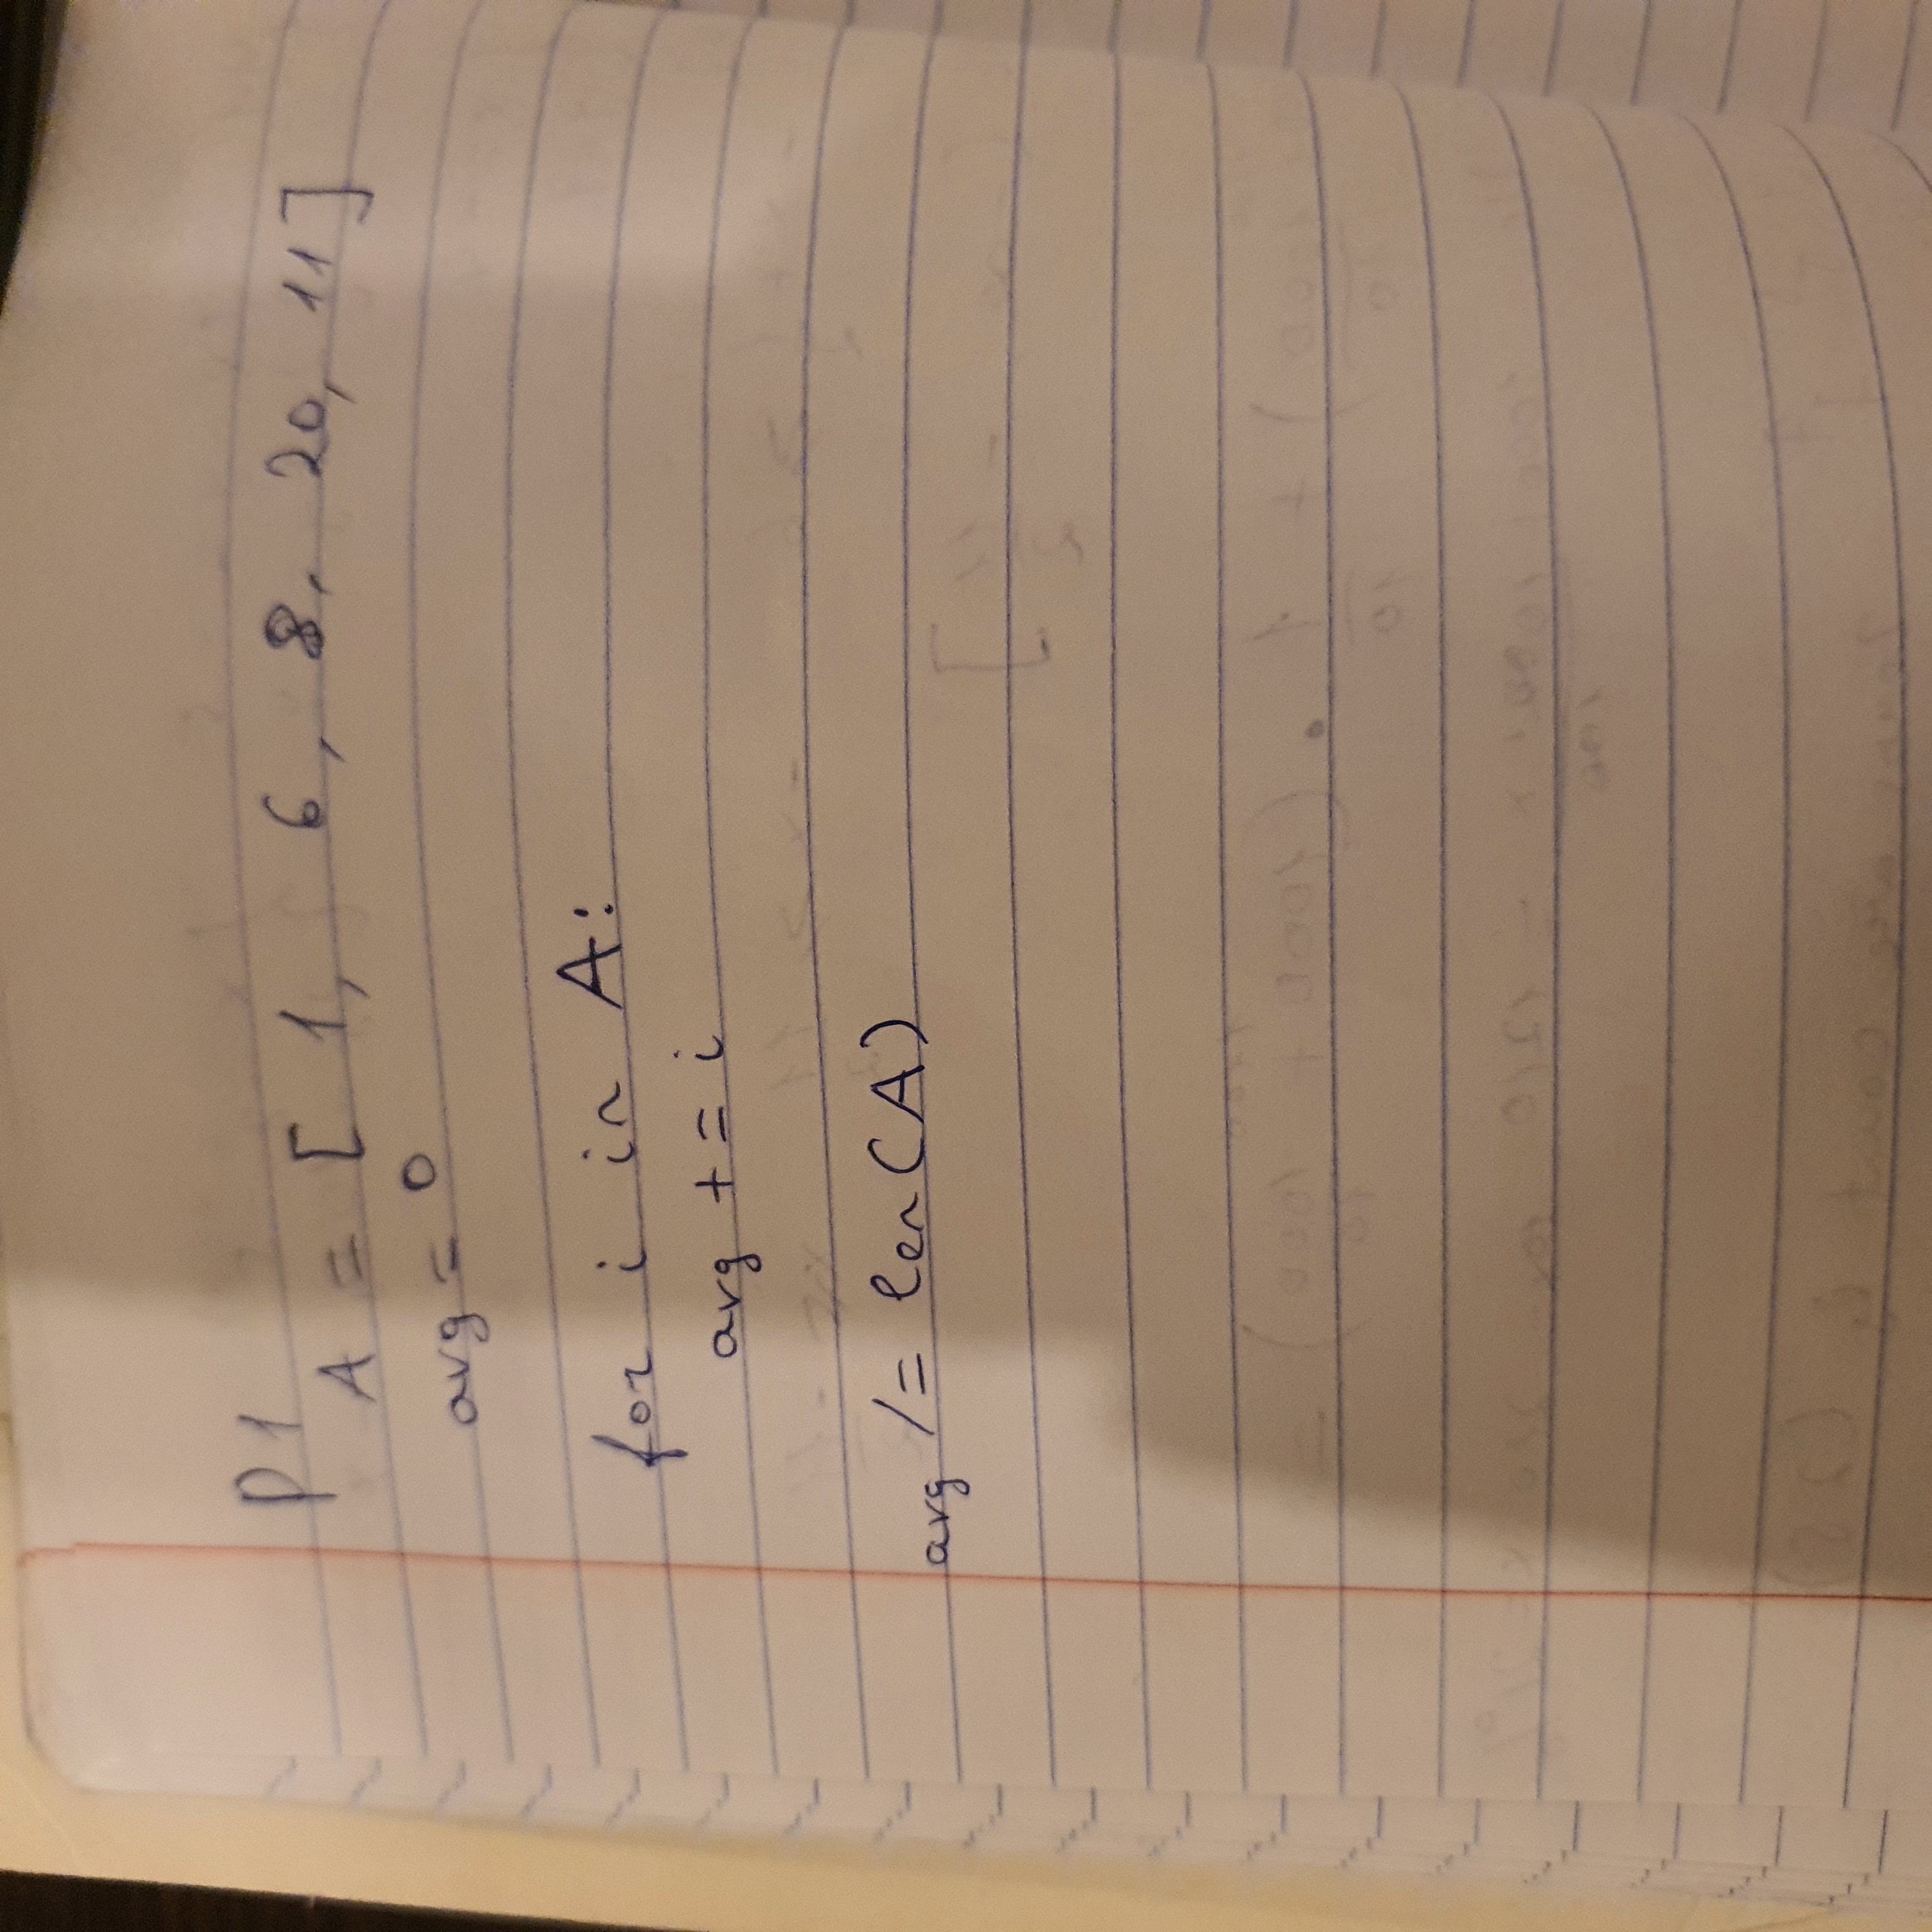 P1
A = [ 1, 6, 8, 20, 11]
avg = 0
for i in A:
avg += i
avg /= len(A)